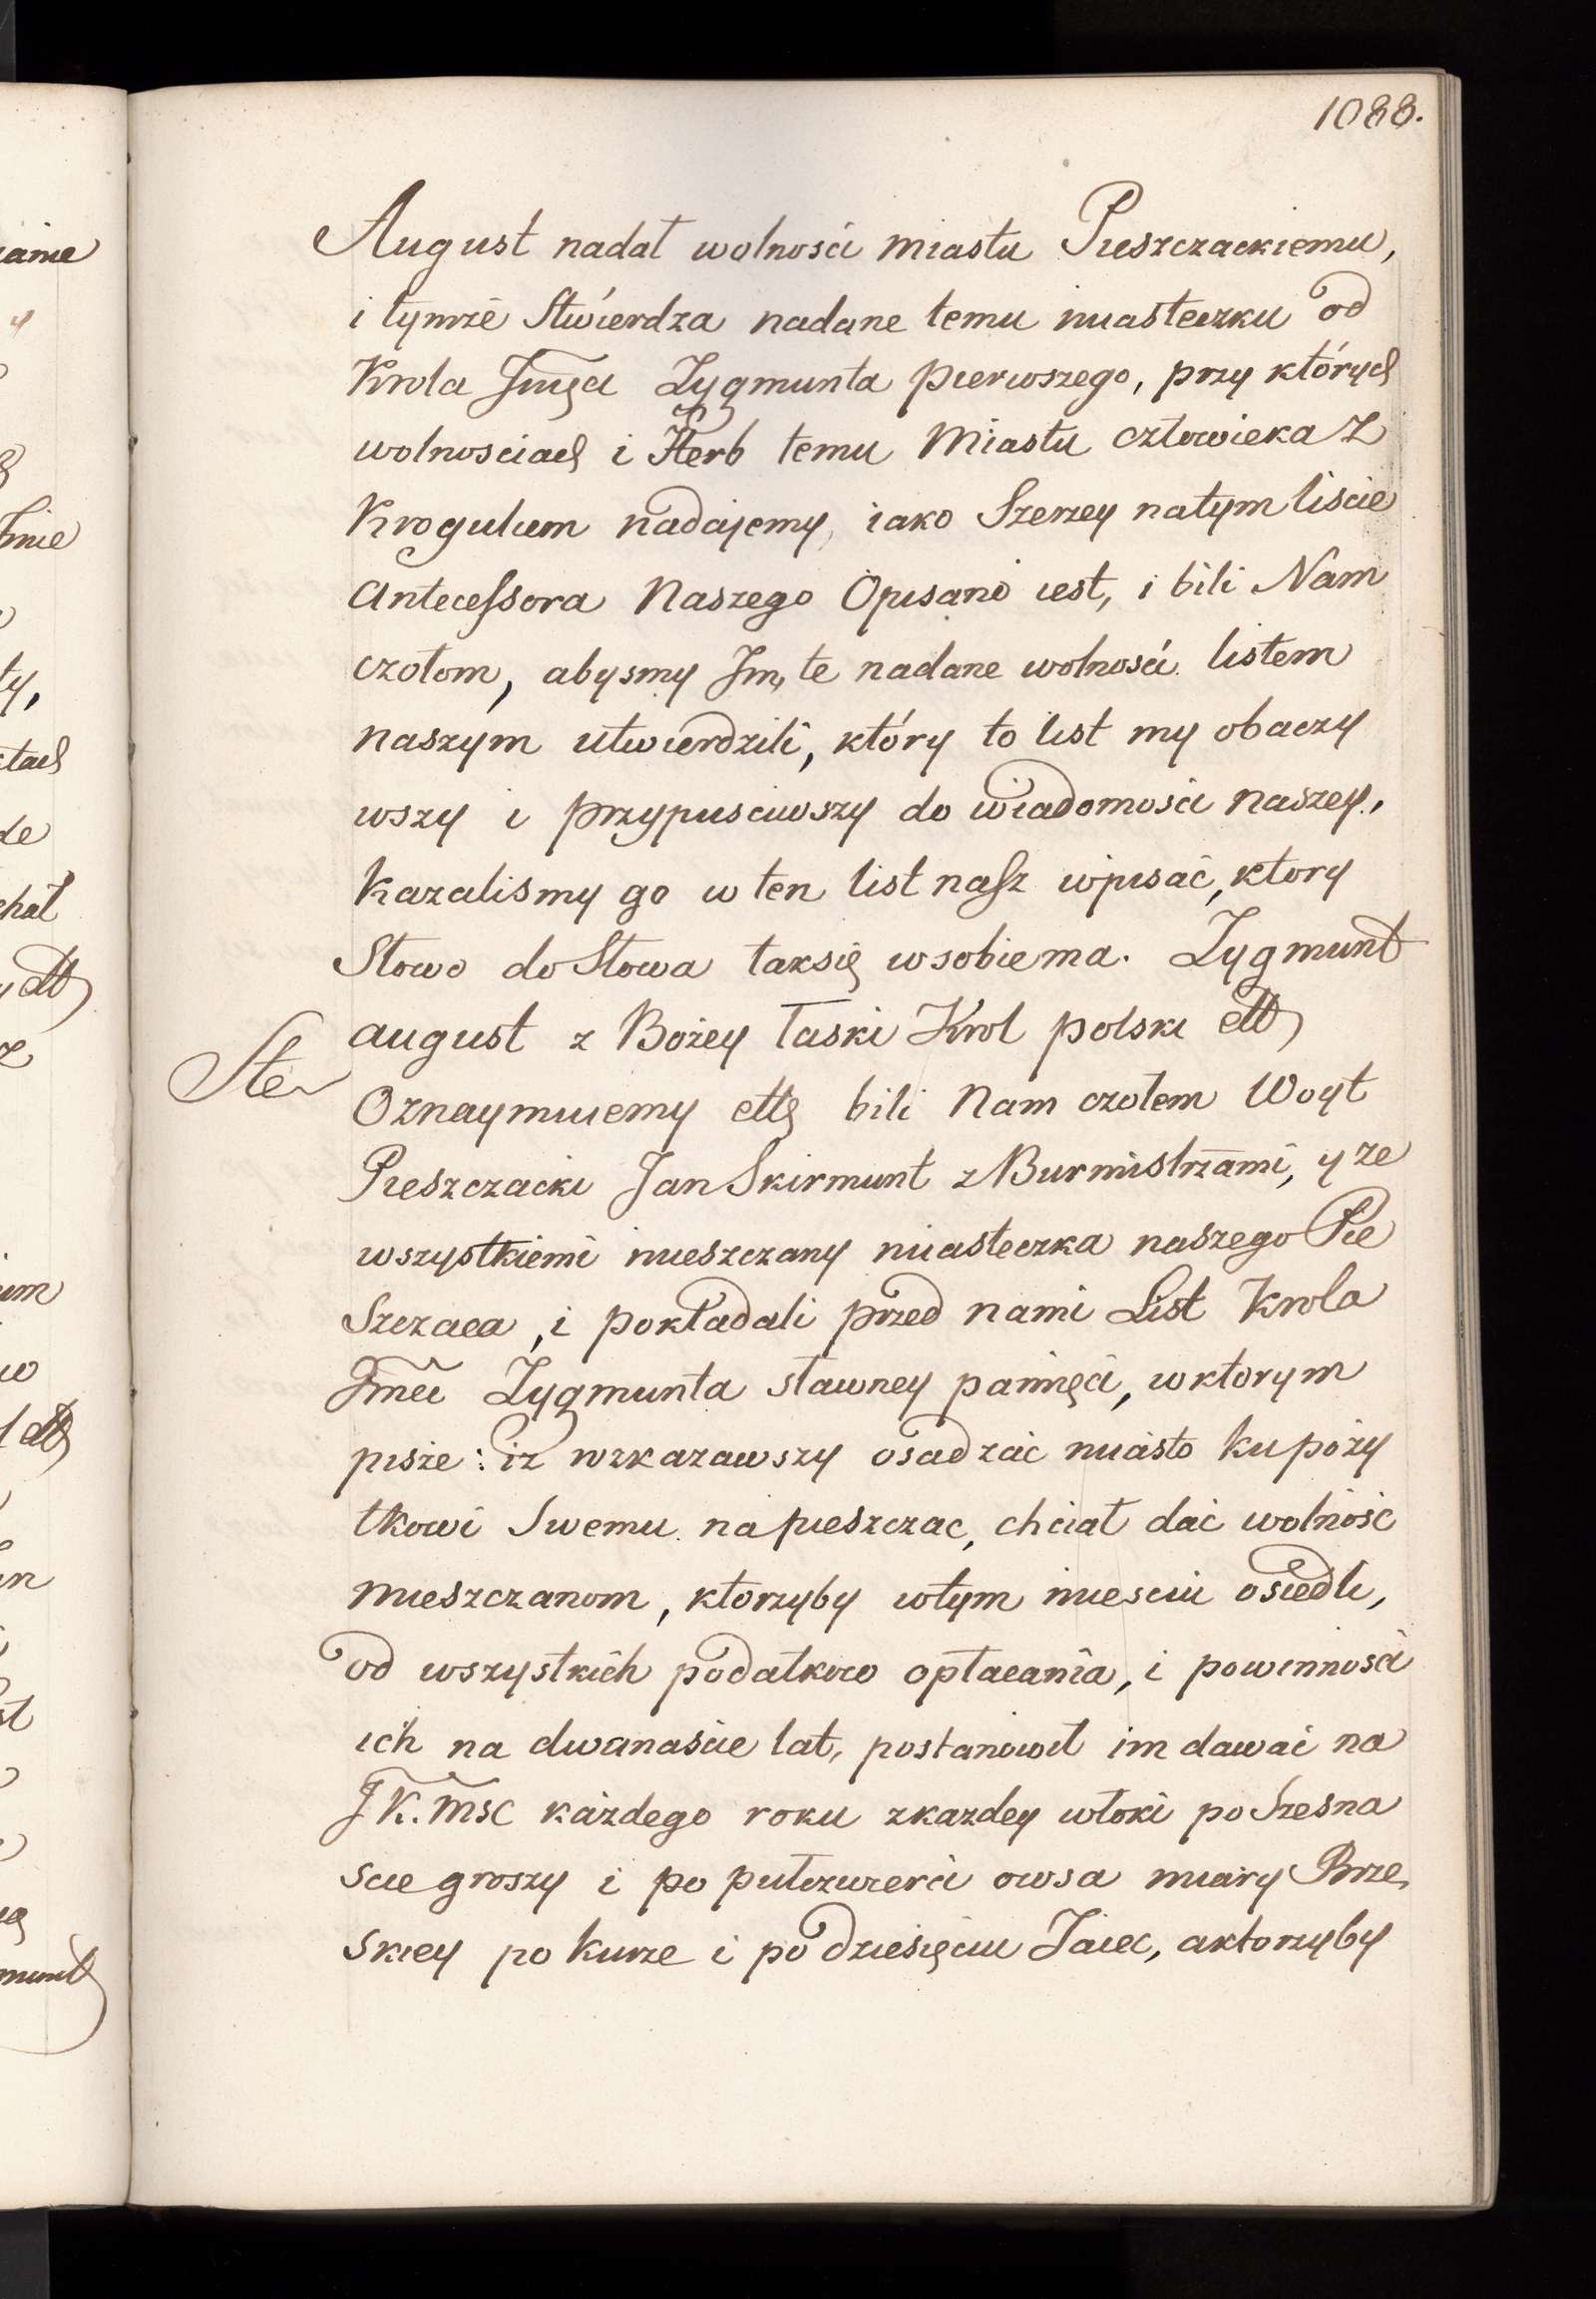 1088.
August nadał wolnosci miastu Pieszczackiemu,
i tymże Stwierdza nadane temu miasteczku od
Krola Jmęci Zygmunta pierwszego, przy których
wolnosciach i Herb temu Miastu człowieka z
Krogulcem nadajemy, iako Szerzey natym liscie
Antecessora Naszego Opisano iest, i bili Nam
czołom, abysmy Im, te nadane wolności listem
naszym utwierdzili, który to list my obaczy
wszy i przypusciwszy do wiadomosci naszey,
Kazalismy go w ten list nasz wpisać, ktory
Słowo do Słowa taksię wsobie ma. Zygmunt
august z Bożey Łaski Krol polski ett
Ste
Oznaymuiemy ettę bili Nam czołem Woyt
Pieszczacki Jan Skirmunt z Burmistrzami, y ze
wszystkiemi mieszczany miasteczka naszego Pie
Szczaca, i pokładali przed nami List Krola
Jmci Zygmunta sławney pamięci, wktorym
pisze: iż wzkazawszy osadzać miasto ku poży
tkowi Swemu na pieszczac, chciał dać wolność
mieszczanom, ktorzyby wtym miesciu osiedli,
od wszystkich podatkow opłacania, i powinnosci
ich na dwanaście lat, postanowił im dawać na
JK. Msc każdego roku zkazdey włoki po Szesna
scie groszy i po pułczwierci owsa miary Brze,
skiey po kurze i po dziesięciu Jaiec, aktorzyby